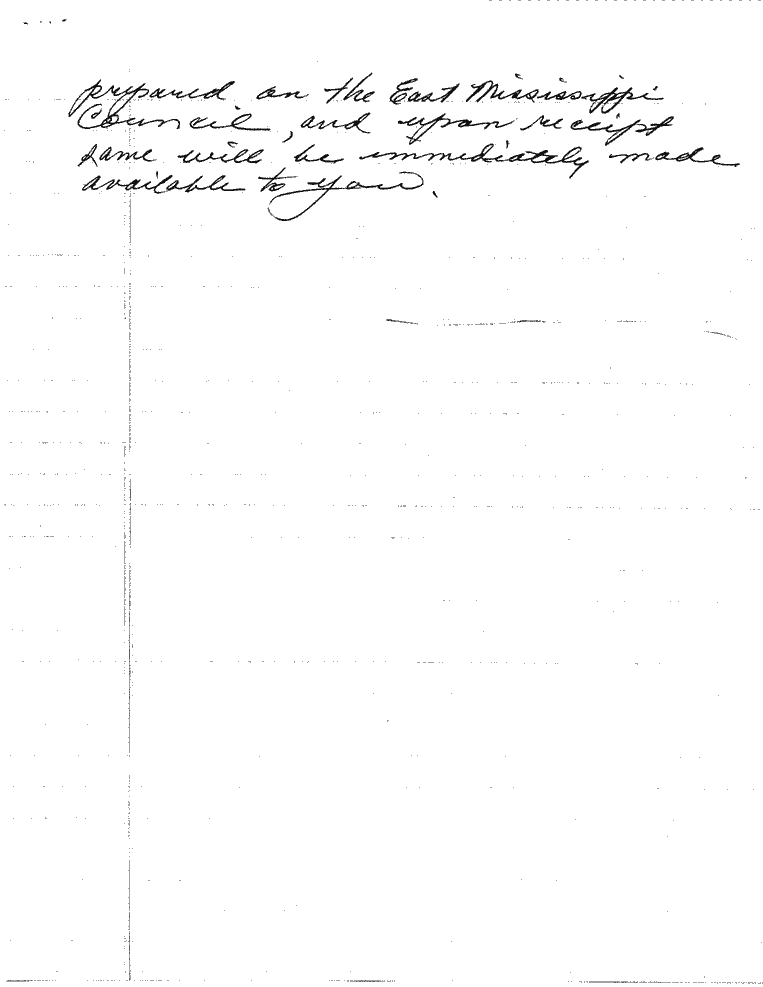 prepared on the East Mississippi
Council, and upon receipt
same will be immediately made
available to you.